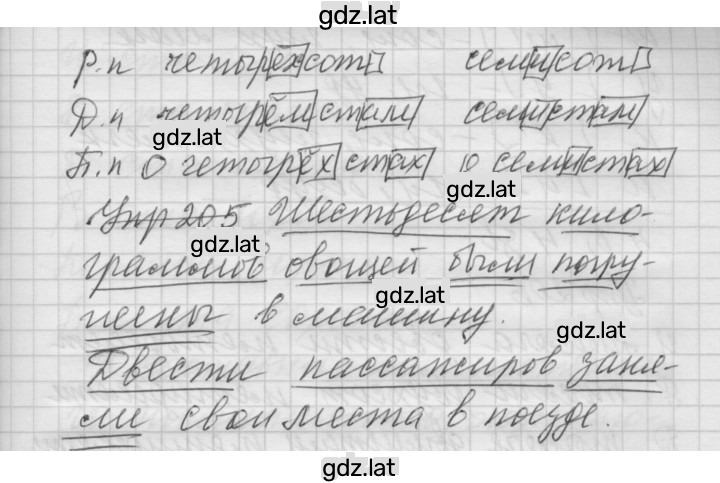 gdz.lat
Р.п четырёхсот семисот
Д.п четырёмстам семистам
gdz.lat
П.п О четырёхстах о семистах
gdz.lat
Упр 205 Шестьдесят кило-
gdz.lat
граммов овощей были погру-
gdz.lat
жены в машину.
gdz.lat
Двести пассажиров заня-
ли свои места в поезде.
gdz.lat